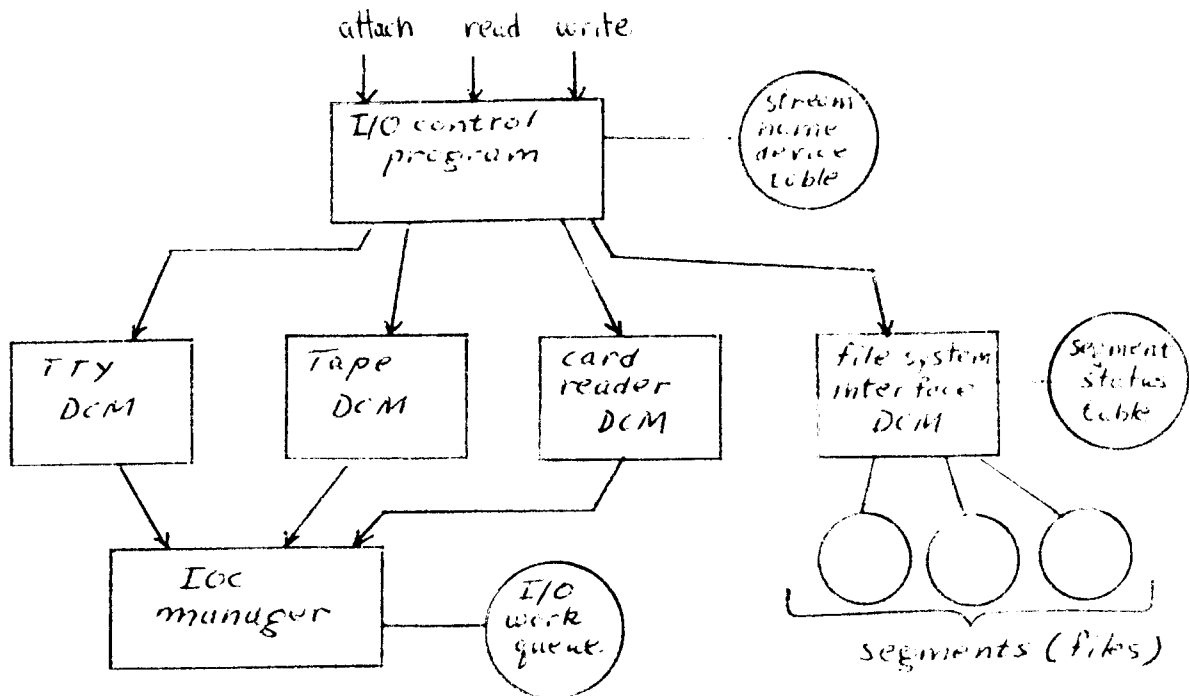 attach read write
I/O control
program
stream
name
device
table
TTY
DCM
Tape
DCM
card
reader
DCM
file system
interface
DCM
segment
status
table
IOC
manager
I/O
work
queue
segments (files)